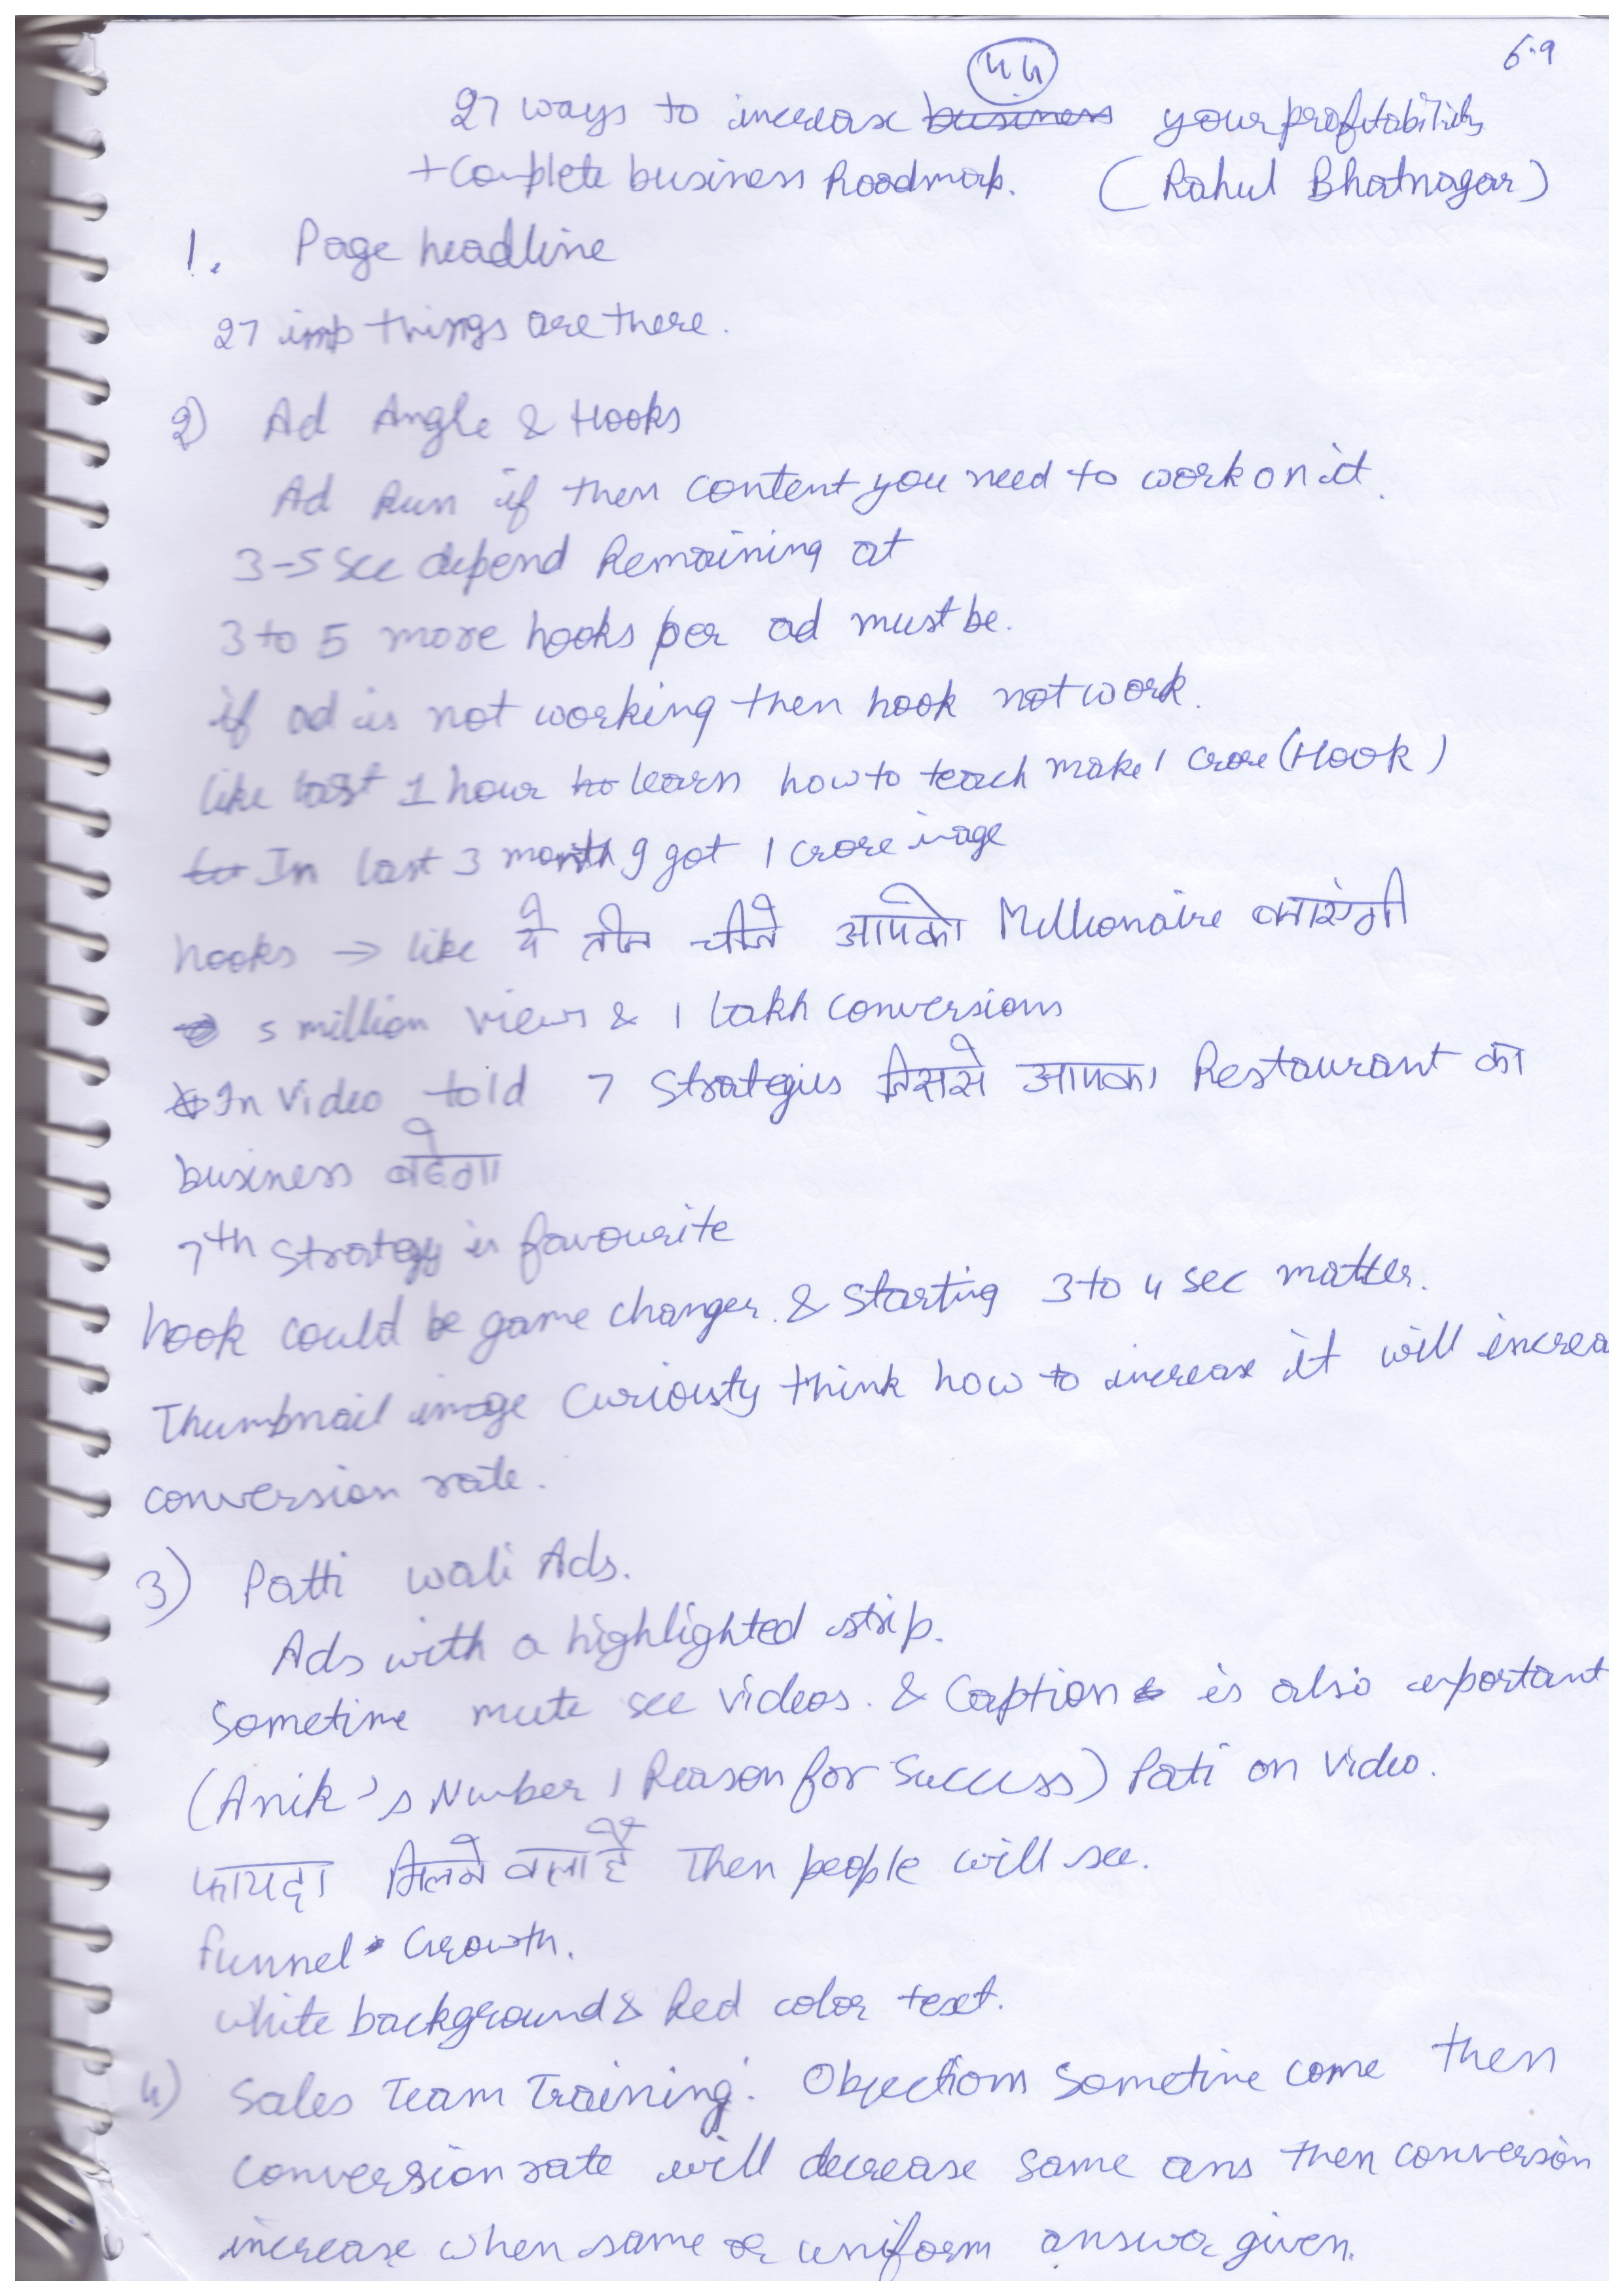 44
6.9
27 ways to increase business your profitability
+ Complete business Roadmap. (Rahul Bhatnagar)
1. Page headline
27 imp things are there.
2) Ad Angle & Hooks
Ad Run if then content you need to work on it.
3-5 sec depend Remaining at
3 to 5 more hooks per ad must be.
if ad is not working then hook not work.
like last 1 hour to learn how to teach make 1 crore (Hook)
In last 3 month I got 1 crore
hooks → like ये तीन चीजे आपको Millionaire बनाऐगी
5 million views & 1 lakh conversions
In Video told 7 Strategies जिससे आपका Restaurant का
business बढेगा
7th Strategy is favourite
hook could be game changer. & Starting 3 to 4 sec matter.
Thumbnail image Curiousty think how to increase it will increa
conversion rate.
3) Patti wali Ads.
Ads with a highlighted strip.
Sometime mute see videos. & Caption is also important
(Anik's Number 1 Reason for Success) Pati on Video.
फायदा मिलने वाला है Then people will see.
funnel Growth.
white background & Red color text.
4) Sales Team Training: Objections Sometime come then
conversion rate will decrease same ans then conversion
increase when same or uniform answer given.